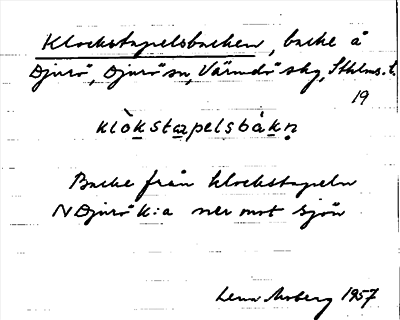 Klockstapelsbacken, backe å
Djurö, Djurö sn, Värmdö skg, Sthlms. l.
19
klòkstapelsbàkn̥
Backe från klockstapeln
N Djurö k:a ner mot sjön
Lena Moberg 1957